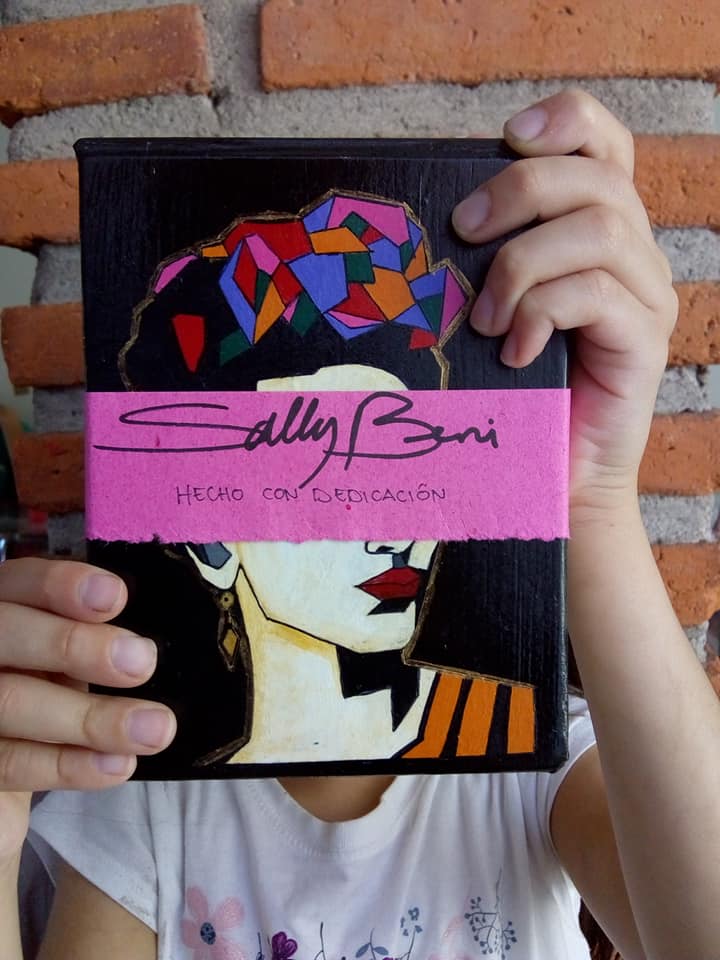 Sally Beni
HECHO CON DEDICACIÓN